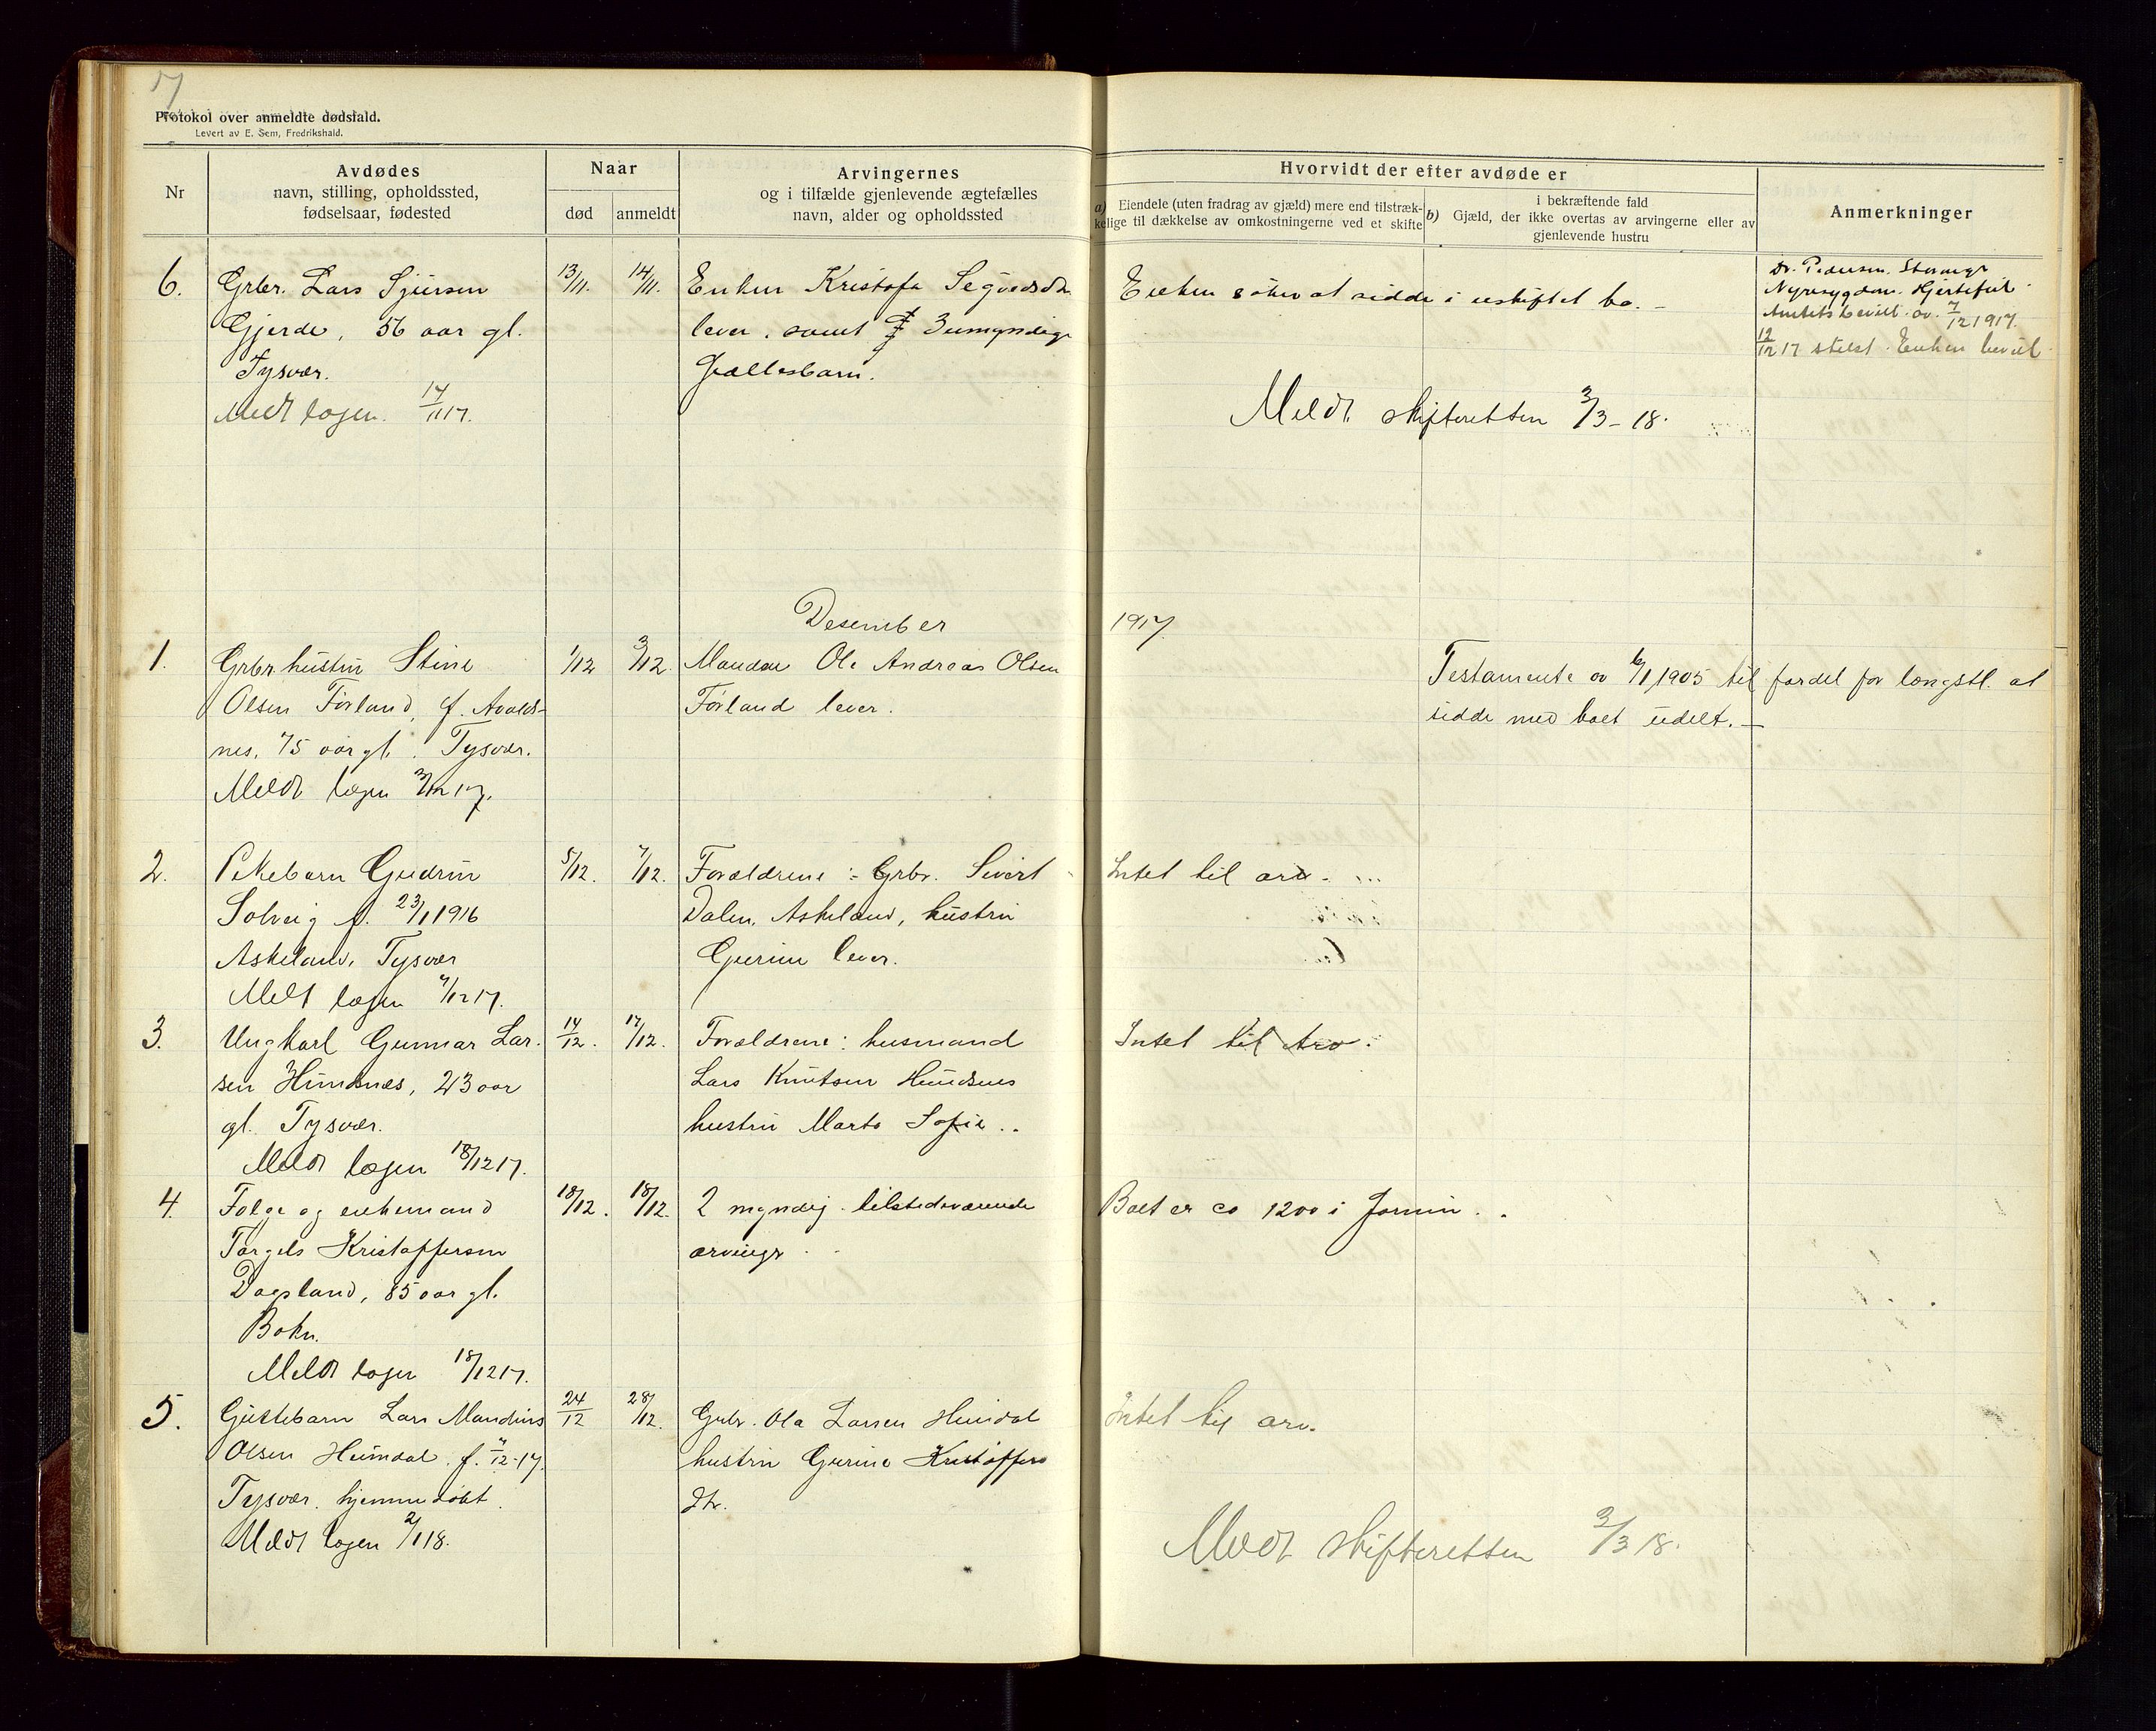 17
Protokol over anmeldte dødsfald.
Levert av E. Sem, Fredrikshald.
Nr
Avdødes
navn, stilling, opholdssted,
fødselsaar, fødested
Naar
død
anmeldt
Arvingernes
og i tilfælde gjenlevende ægtefælles
navn, alder og opholdssted
Hvorvidt der efter avdøde er
a) Eiendele (uten fradrag av gjæld) mere end tilstræk-
kelige til dækkelse av omkostningerne ved et skifte
i bekræftende fald
b) Gjæld, der ikke overtas av arvingerne eller av
gjenlevende hustru
Anmerkninger
6.
Grbr. Lars Sjursen
Gjerde, 56 aar gl.
Tysvær.
Meldt lægen. 17/11 17.
13/11.
14/11.
Enken Kristofa
lever. samt 3 umyndige
Fællesbarn.
Enken søker at sidde i uskiftet bo. -
Dr. Pedersen.
Nyresygdom. Hjertefeil.
Amtets bevill. av. 7/12 1917.
12/12 17 Enken bevil.
Meldt skifteretten 3/3 - 18.
Desember
1917.
1.
Grbr. hustru Stine
Olsen Førland, f. Avalds-
nes, 75 aar gl. Tysvær.
Meldt lægen 3/12 17.
1/12
3/12.
Manden Ole Andreas Olsen
Førland lever.
Testamente av 6/1 1905 til fordel for længstl. at
sidde med boet udelt. -
2.
Pikebarn Gudrun
Solveig f. 23/1 1916
Askeland, Tysvær
Meldt lægen 7/12 17.
5/12.
7/12.
Forældrene: Grbr. Sivert
Dalen, Askeland, hustru
Gurine lever.
Intet til arv.
3.
Ungkarl Gunnar Lar-
sen Hundsnes, 23 aar
gl. Tysvær.
Meldt lægen 18/12 17.
14/12.
17/12.
Forældrene: husmand
Lars Knutsen Hundsnes
hustru Marta Sofie..
Intet til Arv.
4.
Folge og enkemand
Torgels Kristoffersen
Dagsland, 85 aar gl.
Bokn.
Meldt lægen 18/12 17.
18/12.
18/12.
2 myndig. tilstedeværende
arvinger
Boet er ca 1200 i formue.
5.
Guttebarn Lars Mandius
Olsen Heimdal f. 7/12-17.
Tysvær. hjemmedøbt.
Meldt lægen 2/1 18.
24/12
28/12.
Grbr. Ola Larsen Heimdal
hustru Gurine Kristoffers
dtr.
Intet til arv.
Meldt skifteretten 3/3 18.